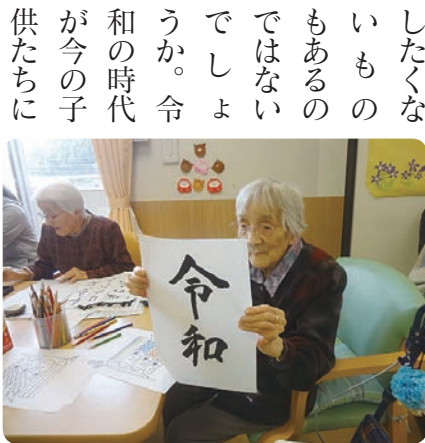 したくな
いもの
もあるの
ではない
でしょ
うか。令
和の時代
が今の子
供たちに
令和